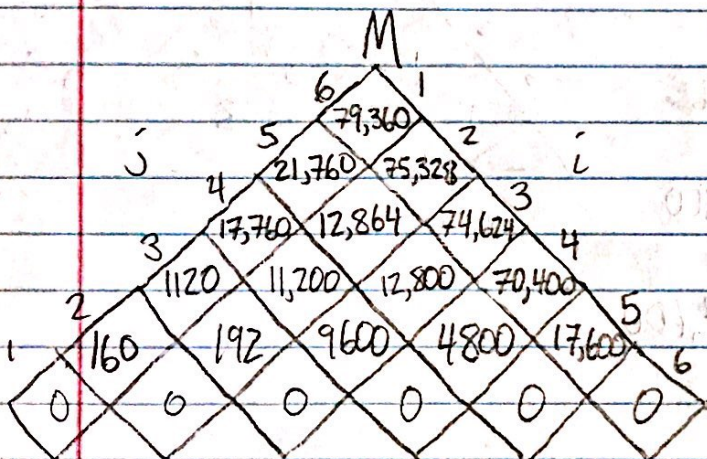 M
6 1
79,360
5 2
j 21,760 75,328 i
4 3
17,760 12,864 74,624
3 4
1120 11,200 12,800 70,400
2 5
160 192 9600 4800 17,600
1 6
0 0 0 0 0 0